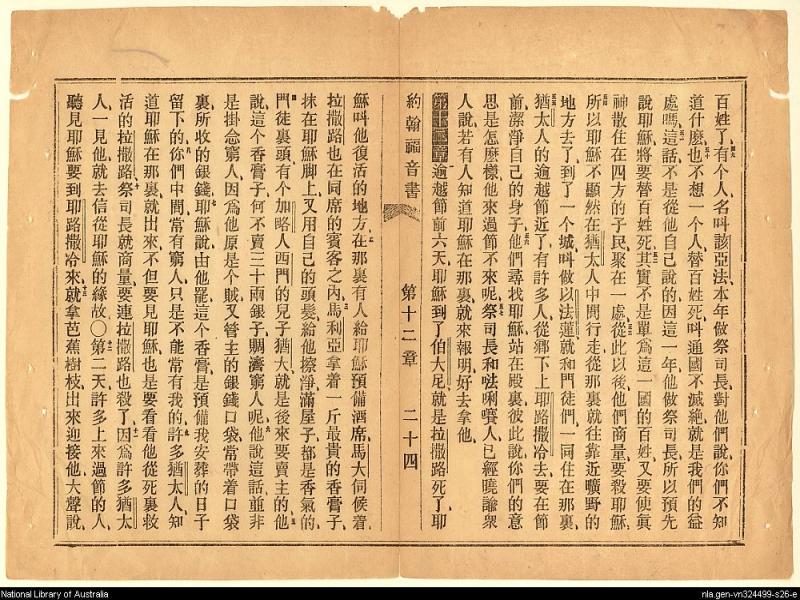 百姓了有個人名叫該亞法本年做祭司長對他們說你們不知
道什麼也不想一個人替百姓死叫通國不滅絶就是我們的益
處嗎這話不是從他自己說的因這一年他做祭司長所以預先
說耶穌將要替百姓死其實不是單爲這一國的百姓又要使眞
神散住在四方的子民聚在一處從此以後他們商量要殺耶穌
所以耶穌不顯然在猶太人中間行走從那裏就往靠近曠野的
地方去了到了一个城叫做以法蓮就和門徒們一同住在那裏
猶太人的逾越節近了有許多人從鄉下上耶路撒冷去要在節
前潔淨自己的身子他們尋找耶穌站在殿裏彼此說你們的意
思是怎麽樣他來過節不來呢祭司長和𠵽唎㘔人已經曉諭衆
人說若有人知道耶穌在那裏就來報明好去拿他
第十二章逾越節前六天耶穌到了伯大尼就是拉撒路死了耶
約翰福音書 第十二章 二十四
穌叫他復活的地方在那裏有人給耶穌預備酒席馬大伺候着
拉撒路也在同席的賓客之內馬利亞拿着一斤最貴的香膏子
抹在耶穌脚上又用自己的頭髮給他擦淨滿屋子都是香氣的
門徒裏頭有个加畧人西門的兒子猶大就是後來要賣主的他
說這个香膏子何不賣三十兩銀子賙濟窮人呢他說這話並非
是掛念窮人因爲他原是个賊又管主的銀錢口袋常帶着口袋
裏所收的銀錢耶穌說由他罷這个香膏是預備我安葬的日子
留下的你們中間常有窮人只是不能常有我的許多猶太人知
道耶穌在那裏就出來不但要見耶穌也是要看看他從死裏救
活的拉撒路祭司長就商量要連拉撒路也殺了因爲許多猶太
人一見他就去信從耶穌的緣故〇第二天許多上來過節的人
聽見耶穌要到耶路撒冷來就拿芭蕉樹枝出來迎接他大聲說
National Library of Australia
nla.gen-vn324499-s26-e